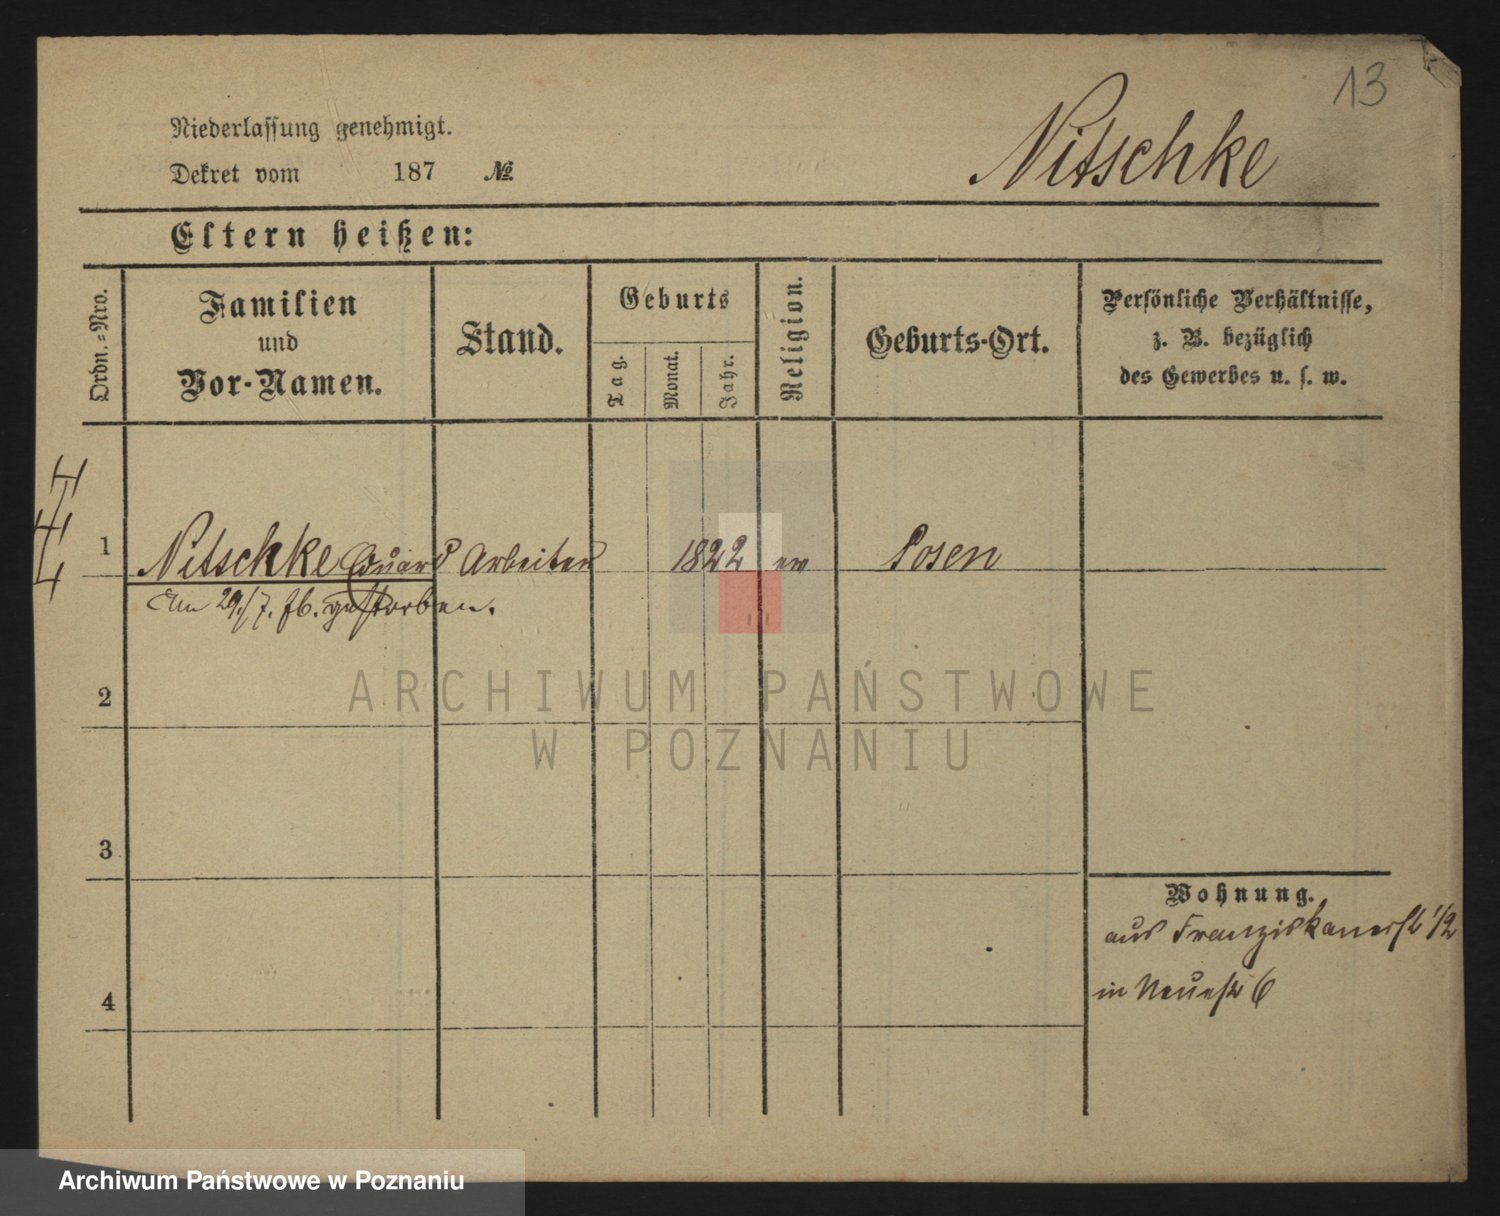 13
Niederlassung genehmigt.
Dekret vom 187 №
Nitschke
Eltern heißen:
Ordn.=Nro.
Familien
und
Vor-Namen.
Stand.
Geburts
Tag.
Monat.
Jahr.
Religion.
Geburts-Ort.
Persönliche Verhältnisse,
z. B. bezüglich
des Gewerbes u. s. w.
1 Nitschke Eduard Arbeiter 1822 ev Posen
Am 29./7. 76. gestorben.
2
3
4
Wohnung.
aus Franziskanerstr 1/2
in Neuestr 6
ARCHIWUM PAŃSTWOWE
W POZNANIU
Archiwum Państwowe w Poznaniu